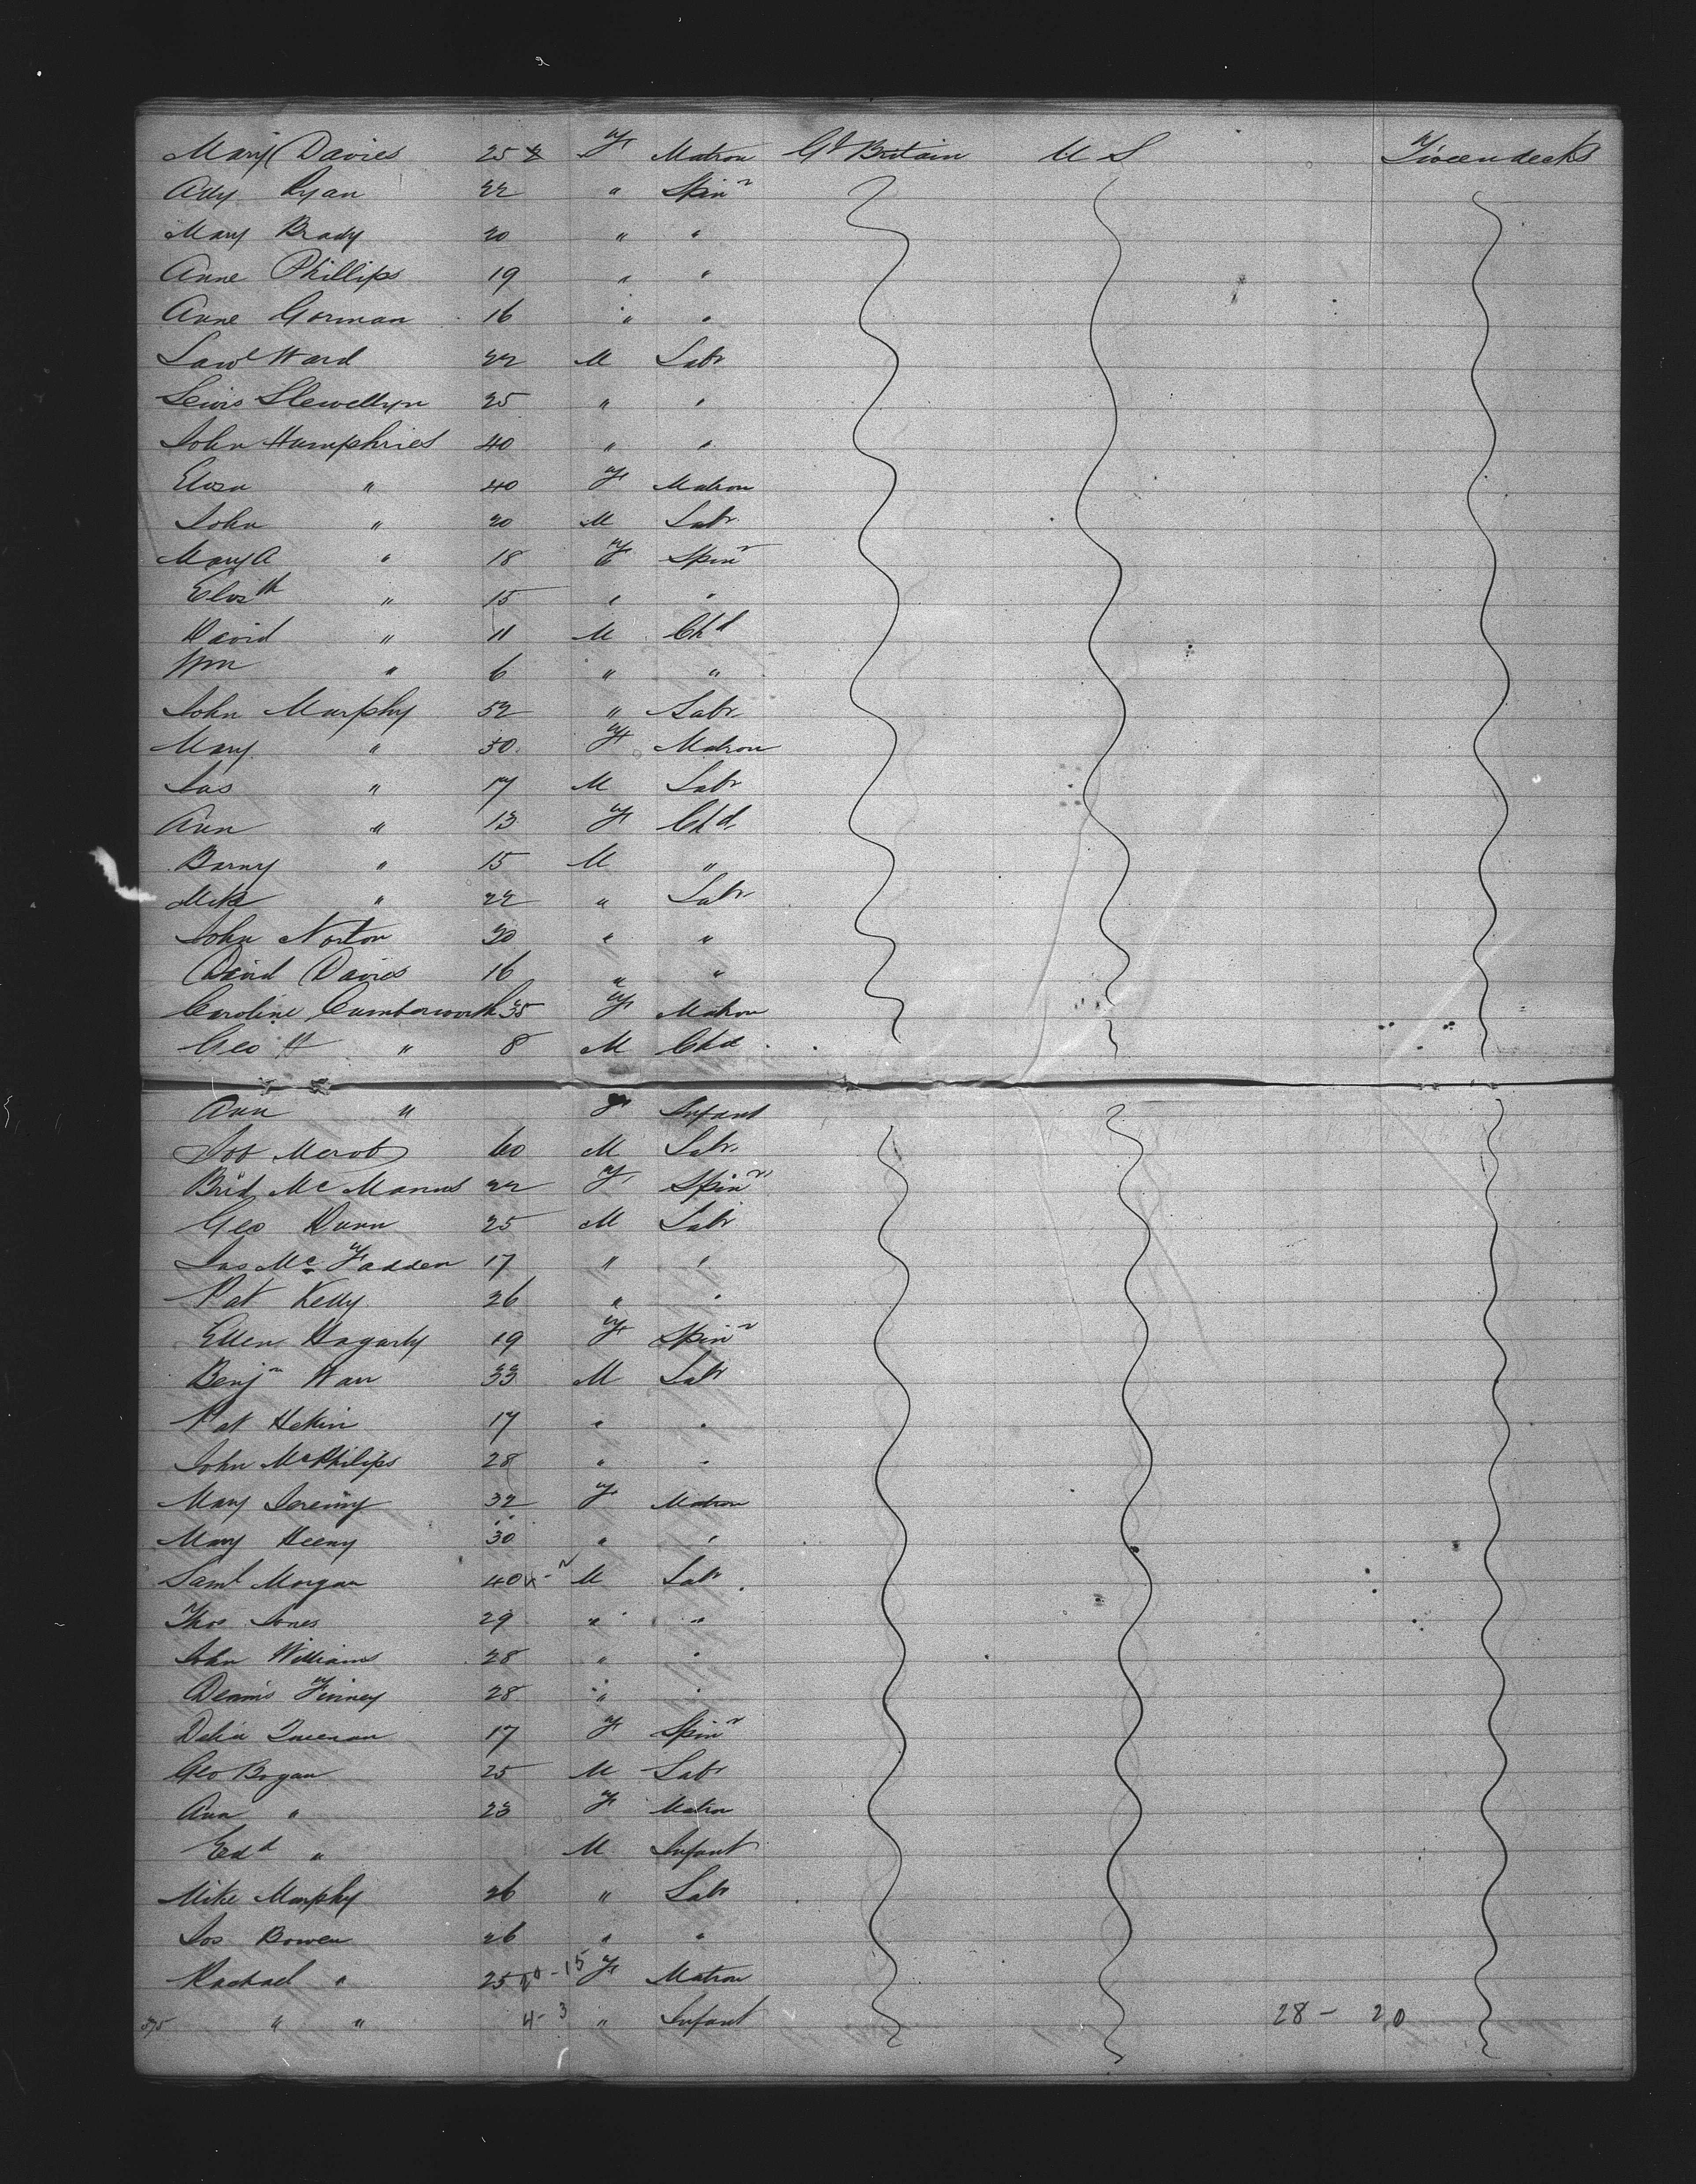 Mary Davies 25 F Matron Gt Britain U S Tweendecks
Ryan 22 " Spinr
Mary Brady 20 " "
Anne Phillips 19 " "
Anne Gorman 16 " "
Lawe Ward 22 M Labr
Lewis Llewellyn 25 " "
John Humphries 40 " "
Eliza " 40 F Matron
John " 20 M Labr
Mary A " 18 F Spinr
Elizth " 15 " "
David " 11 M Chd
Wm " 6 " "
John Murphy 52 " Labr
Mary " 50 F Matron
Jas " 17 M Labr
Ann " 13 F Chd
Barny " 15 M "
Mike " 22 " Labr
John Norton 20 " "
David Davies 16 " "
Caroline Cumberworth 35 F Matron
Geo H " 8 M Chd
Ann " F Infant
Job 60 M Labr
Brid Mc Manus 22 F Spinr
Geo Dunn 25 M Labr
Jas Mc Fadden 17 " "
Pat Kelly 26 " "
Ellen Hagarty 19 F Spinr
Benjn Warr 33 M Labr
Pat 17 " "
John McPhilips 28 " "
Mary Jeremy 32 F Matron
Mary Heeny 30 " "
Saml Morgan 40 M Labr
Thos Jones 29 " "
John Williams 28 " "
Dennis Finney 28 " "
Delia 17 F Spinr
Geo Bogan 25 M Labr
Ann " 23 F Matron
Edd " M Infant
Mike Murphy 26 " Labr
Jos Bowen 26 " "
Rachael " 25 - 15 F Matron
375 " " 4 - 3 " Infant 28 - 20